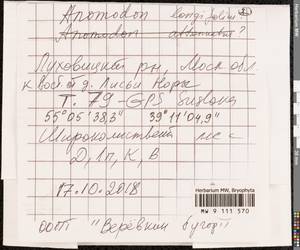 Anomodon longifolius
Anomodon attenuatus?
Луховицкий рн, Моск обл
к Вост от д. Лисьи Норы
Т. 79 - GPS Визвока
55°05'38,3" 39°11'04,9"
Широколиственный лес с
Д, Лп, К, В
17.10.2018
Herbarium MW, Bryophyta
MW 9 111 570
ООПТ "Верёвкин бугор"